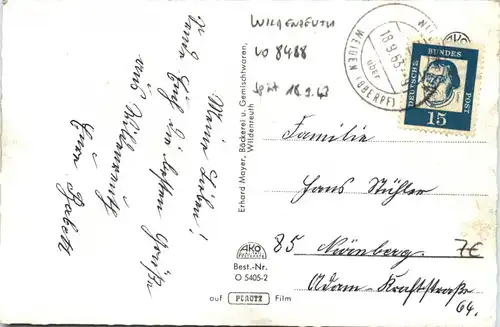 Meine Lieben!
Es
Euch die besten Grüße
aus Wildenreuth
Eure Babett
WILDENREUTH
LO 8488
Spät 18.9.63
Erhard Mayer, Bäckerei u. Gemischtwaren,
Wildenreuth
AKO
Best.-Nr.
O 5405-2
auf PERUTZ Film
WEIDEN (OBERPF)
über
18.9.63
AKO
DEUTSCHE BUNDES POST
15
Familie
Hans Stühler
85 Nürnberg.
Adam-Kraftstraße
64.
7€